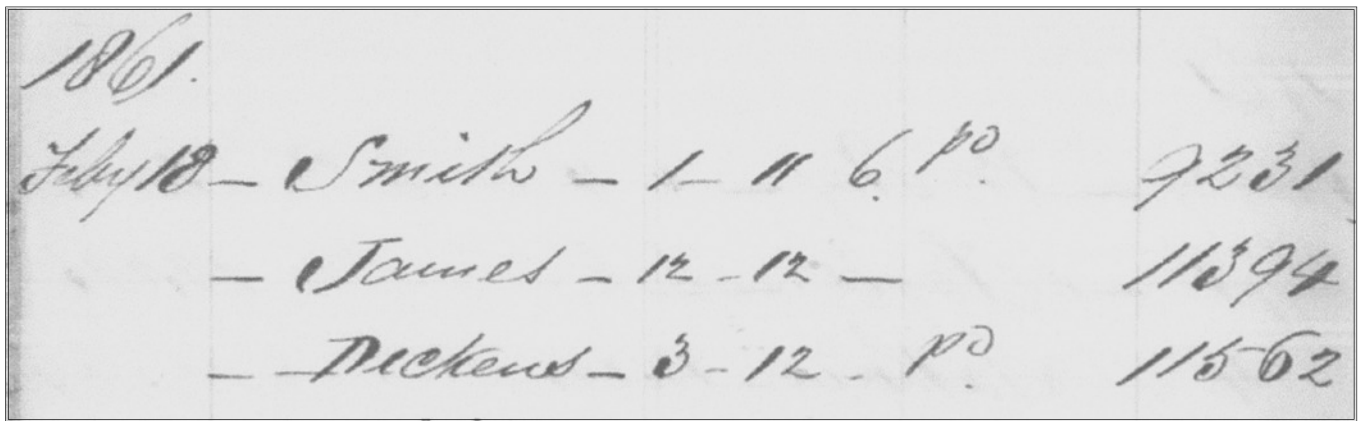 1861.
Feby 18 — Smith — 1 — 11 6. po. 9231
— James — 12 - 12 — 11394
— Dickens — 3 - 12 - po. 11562